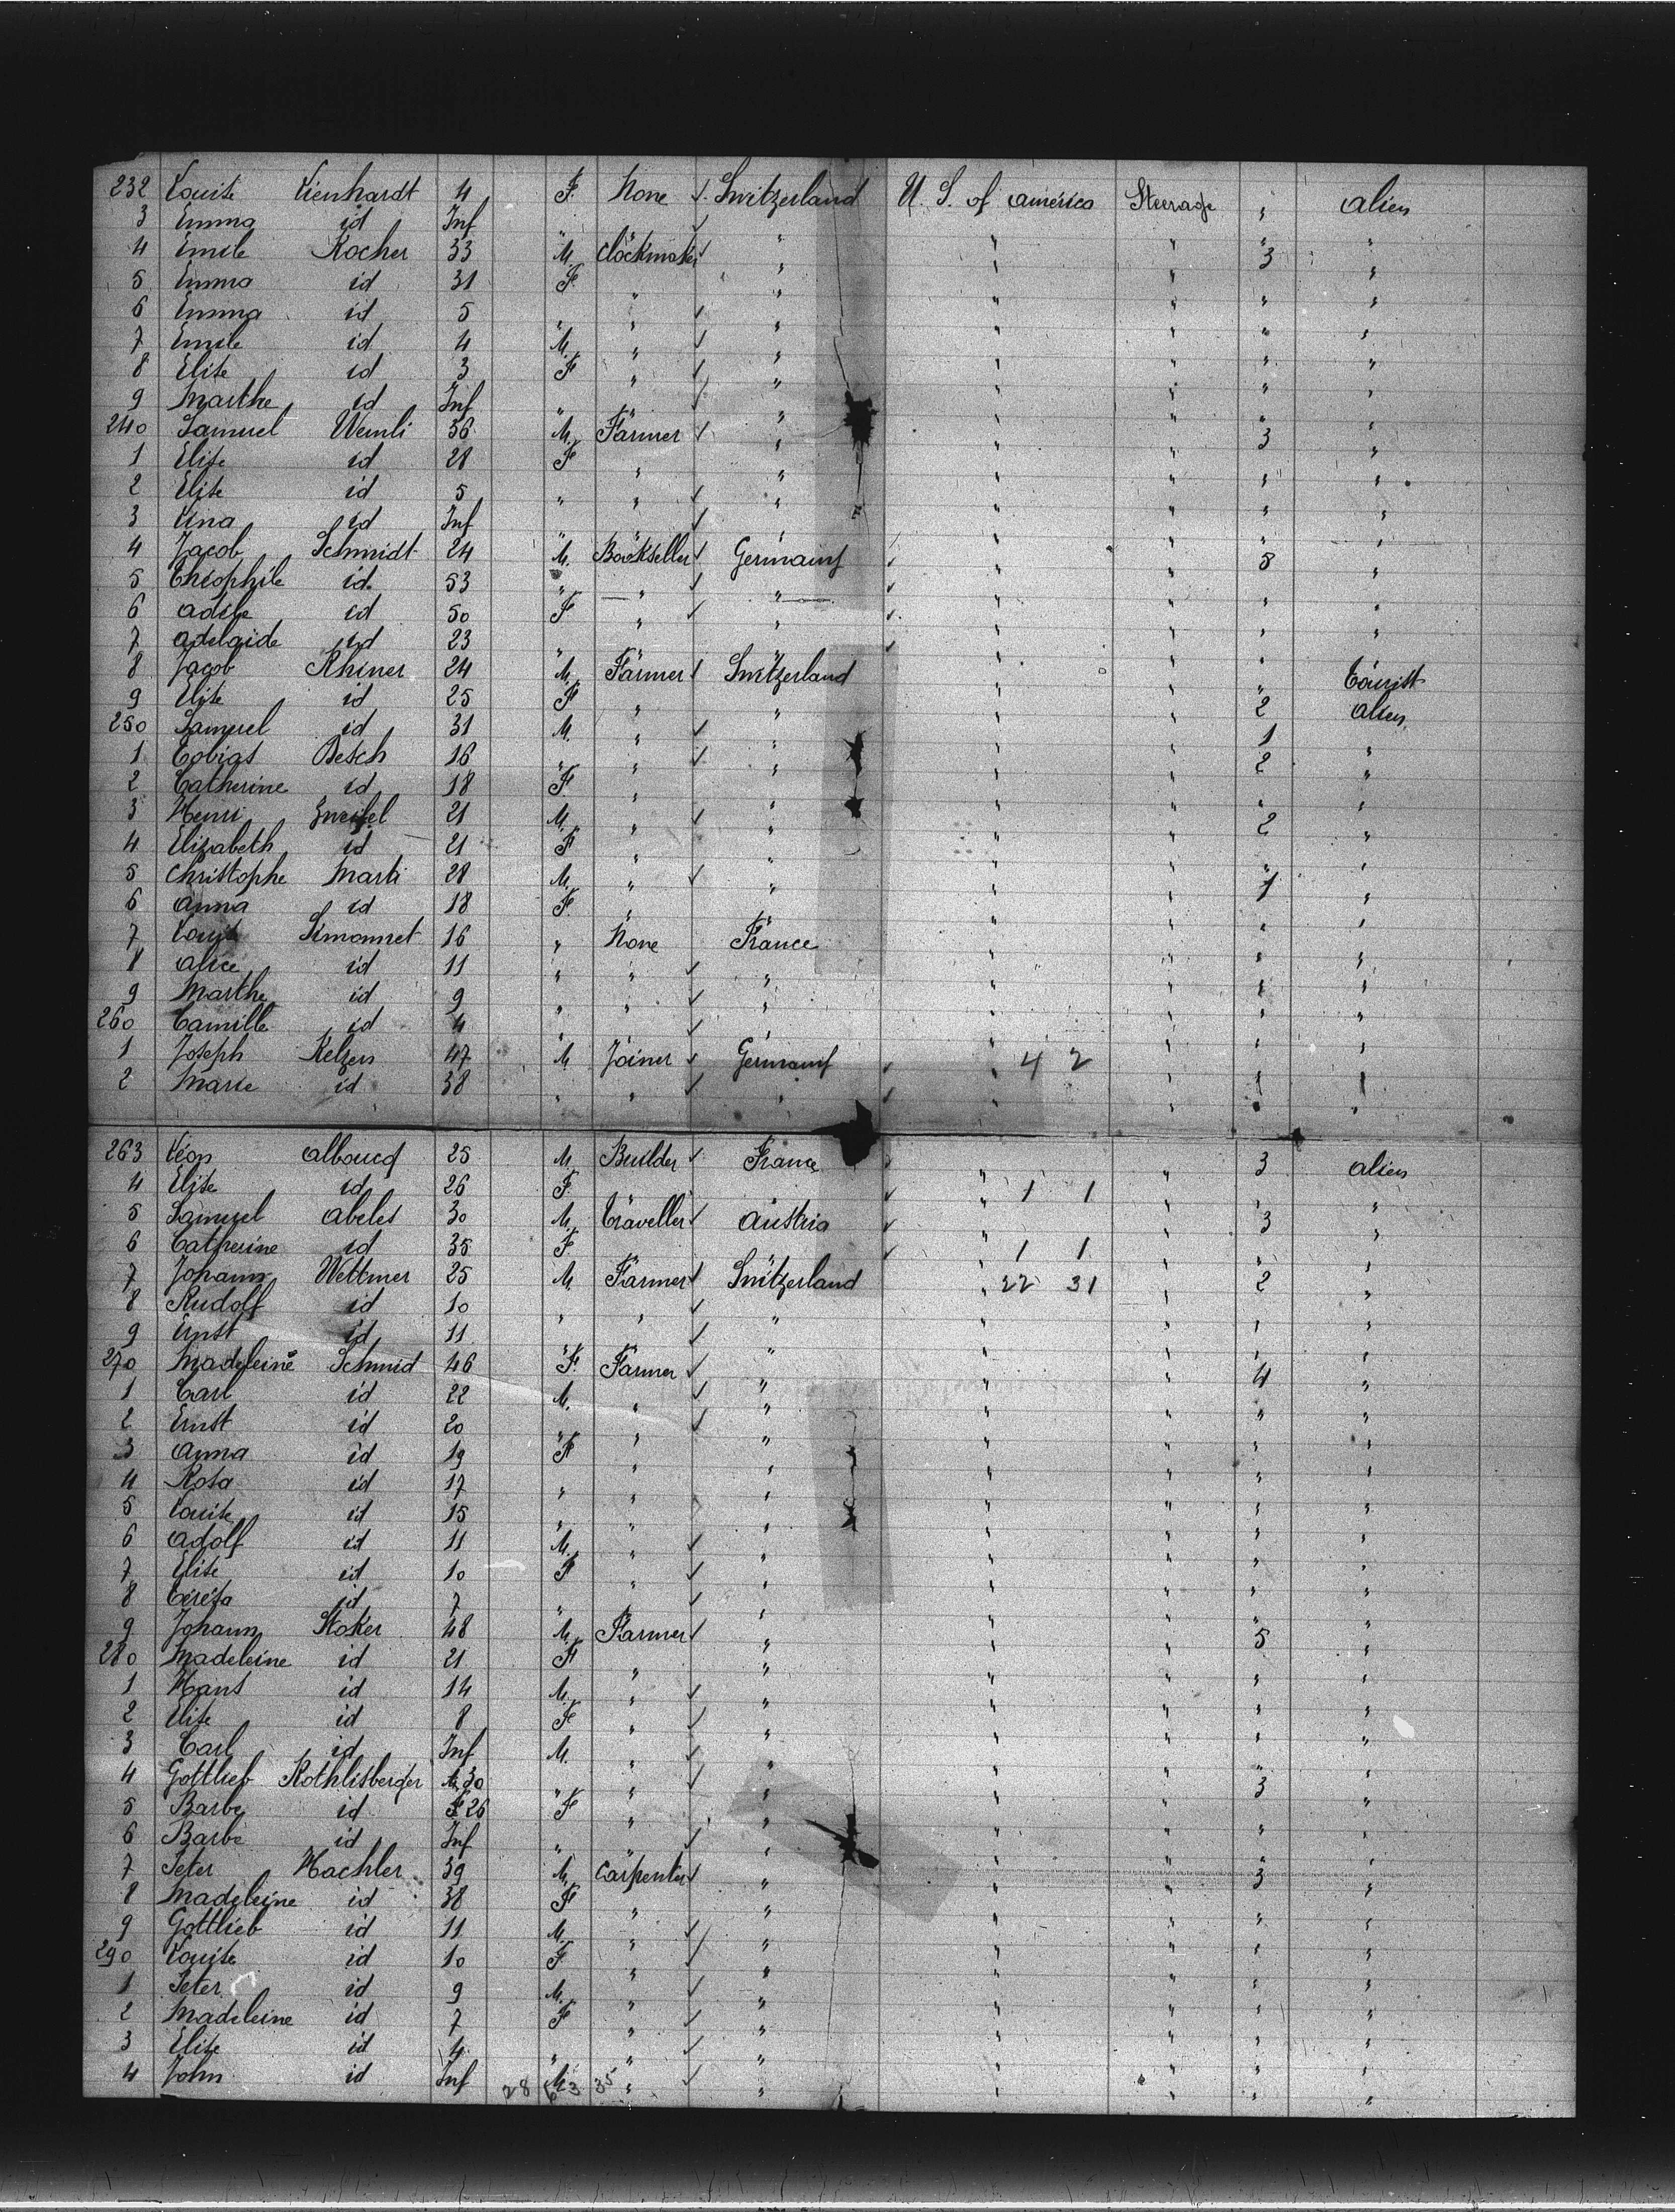 232 Louise Lienhardt 4 F. None Switzerland U. S. of america Steerage " alien
3 Emma id Inf " " " " " " "
4 Emile Kocher 33 M. Clockmaker " " " 3 "
5 Emma id 31 F. " " " " " "
6 Emma id 5 " " " " " " "
7 Emile id 4 M. " " " " " "
8 Elise id 3 F " " " " " "
9 Marthe id Inf " " " " " " "
240 Samuel Wernli 36 M. Farmer " " " 3 "
1 Elise id 28 F " " " " " "
2 Elise id 5 " " " " " " "
3 Lina id Inf " " " " " " "
4 Jacob Schmidt 24 M. Bookseller Germany " " 5 "
5 Théophile id. 53 " " " " " " "
6 adèle id 50 F " " " " " "
7 adelaide id 23 " " " " " " "
8 Jacob Rhiner 24 M. Farmer Switzerland " " " Tourist
9 Elise id 25 F " " " " 2 alien
250 Samuel id 31 M. " " " " 1 "
1 Tobias Besch 16 " " " " " 2 "
2 Catherine id 18 F. " " " " " "
3 Henri Zweifel 21 M. " " " " 2 "
4 Elizabeth id 21 F " " " " " "
5 Christophe Marti 28 M. " " " " 1 "
6 anna id 18 F. " " " " " "
7 Louis Simonnet 16 " None France " " " "
8 alice id 11 " " " " " " "
9 Marthe id 9 " " " " " " "
260 Camille id 4 " " " " " " "
1 Joseph Kelzen 47 M Joiner Germany " 4 2 " " "
2 Marie id 38 " " " " " " "
263 Léon 25 M. Builder France " " 3 alien
4 Elise id 26 F. " 1 1 " " "
5 Samuel abeles 30 M. Traveller austria " " 3 "
6 Catherine id 35 F " 1 1 " " "
7 Johann Wettmer 25 M. Farmer Switzerland " 22 31 " 2 "
8 Rudolf id 10 " " " " " " "
9 Ernst id 11 " " " " " " "
270 Madeleine Schmid 46 F. Farmer " " " 4 "
1 Carl id 22 M. " " " " " "
2 Ernst id 20 " " " " " " "
3 anna id 19 F " " " " " "
4 Rosa id 17 " " " " " " "
5 Louise id 15 " " " " " " "
6 adolf id 11 M. " " " " " "
7 Elise id 10 F " " " " " "
8 id 7 " " " " " " "
9 Johann Stoker 48 M. Farmer " " " 5 "
280 Madeleine id 21 F " " " " " "
1 Hans id 14 M. " " " " " "
2 Elise id 8 F " " " " " "
3 Carl id Inf M. " " " " " "
4 Gottlieb Rothlisberger 30 " " " " " 3 "
5 Barbe id 26 F " " " " " "
6 Barbe id Inf " " " " " " "
7 Peter Hachler 39 M. Carpenter " " " 3 "
8 Madeleine id 38 F " " " " " "
9 Gottlieb id 11 M. " " " " " "
290 Louise id 10 F " " " " " "
1 Peter id 9 M. " " " " " "
2 Madeleine id 7 F " " " " " "
3 Elise id 4 " " " " " " "
4 John id Inf M " " " " " "